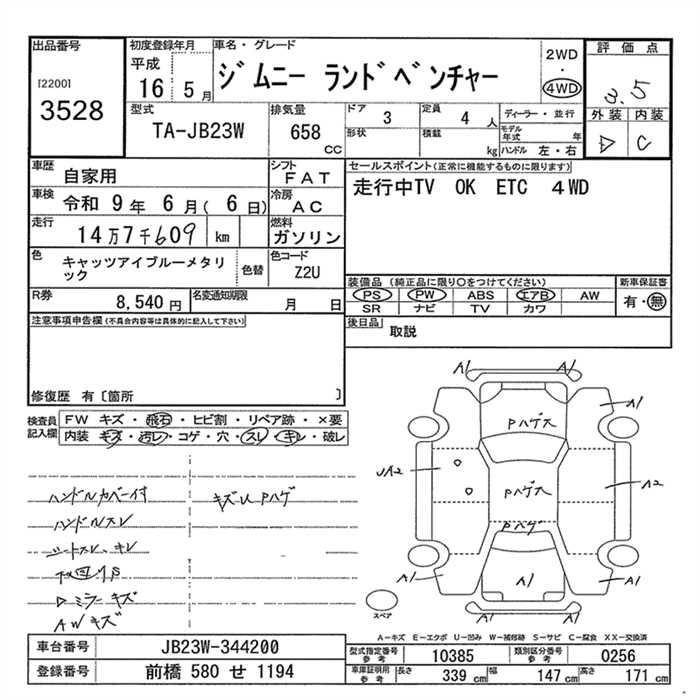 出品番号
[2200]
3528
初度登録年月
平成
16 5月
車名・グレード
ジムニー ランドベンチャー
2WD
・
4WD
評価点
3.5
外装 内装
D C
型式
TA-JB23W
排気量
658
CC
ドア
3
定員
4 人
ディーラー・並行
形状
積載
kg
モデル年式
年
ハンドル 左・右
車歴
自家用
シフト
FAT
車検
令和 9年 6月( 6日)
冷房
AC
走行
14万7千609 km
燃料
ガソリン
色
キャッツアイブルーメタリック
色替
色コード
Z2U
R券
8,540円
名変通知期限
月 日
セールスポイント(正常に機能するものに限ります)
走行中TV OK ETC 4WD
装備品(純正品に限り○をつけてください)
新車保証書
PS PW ABS エアB AW
SR ナビ TV カワ
有・無
後日品
取説
注意事項申告欄(不具合内容等は具体的に記入して下さい)
修復歴 有〔箇所 〕
検査員
記入欄
FW キズ・飛石・ヒビ割・リペア跡・×要
内装・キズ・汚レ・コゲ・穴・スレ・キレ・破レ
ハンドルカバー付 キズUPハゲ
ハンドルスレ
シートスレ、キレ
下回りS
Dミラーキズ
AWキズ
A1 A1
A1
Pハゲス
UA2
Pハゲス
A2
Pハゲ
A1 A1 A1
A1 A1
スペア
A-キズ E-エクボ U-凹み W-補修跡 S-サビ C-腐食 XX-交換済
車台番号
JB23W-344200
登録番号
前橋 580 せ 1194
型式指定番号
参考
10385
類別区分番号
参考
0256
車庫証明用
参考
長さ
339 cm
幅
147 cm
高さ
171 cm